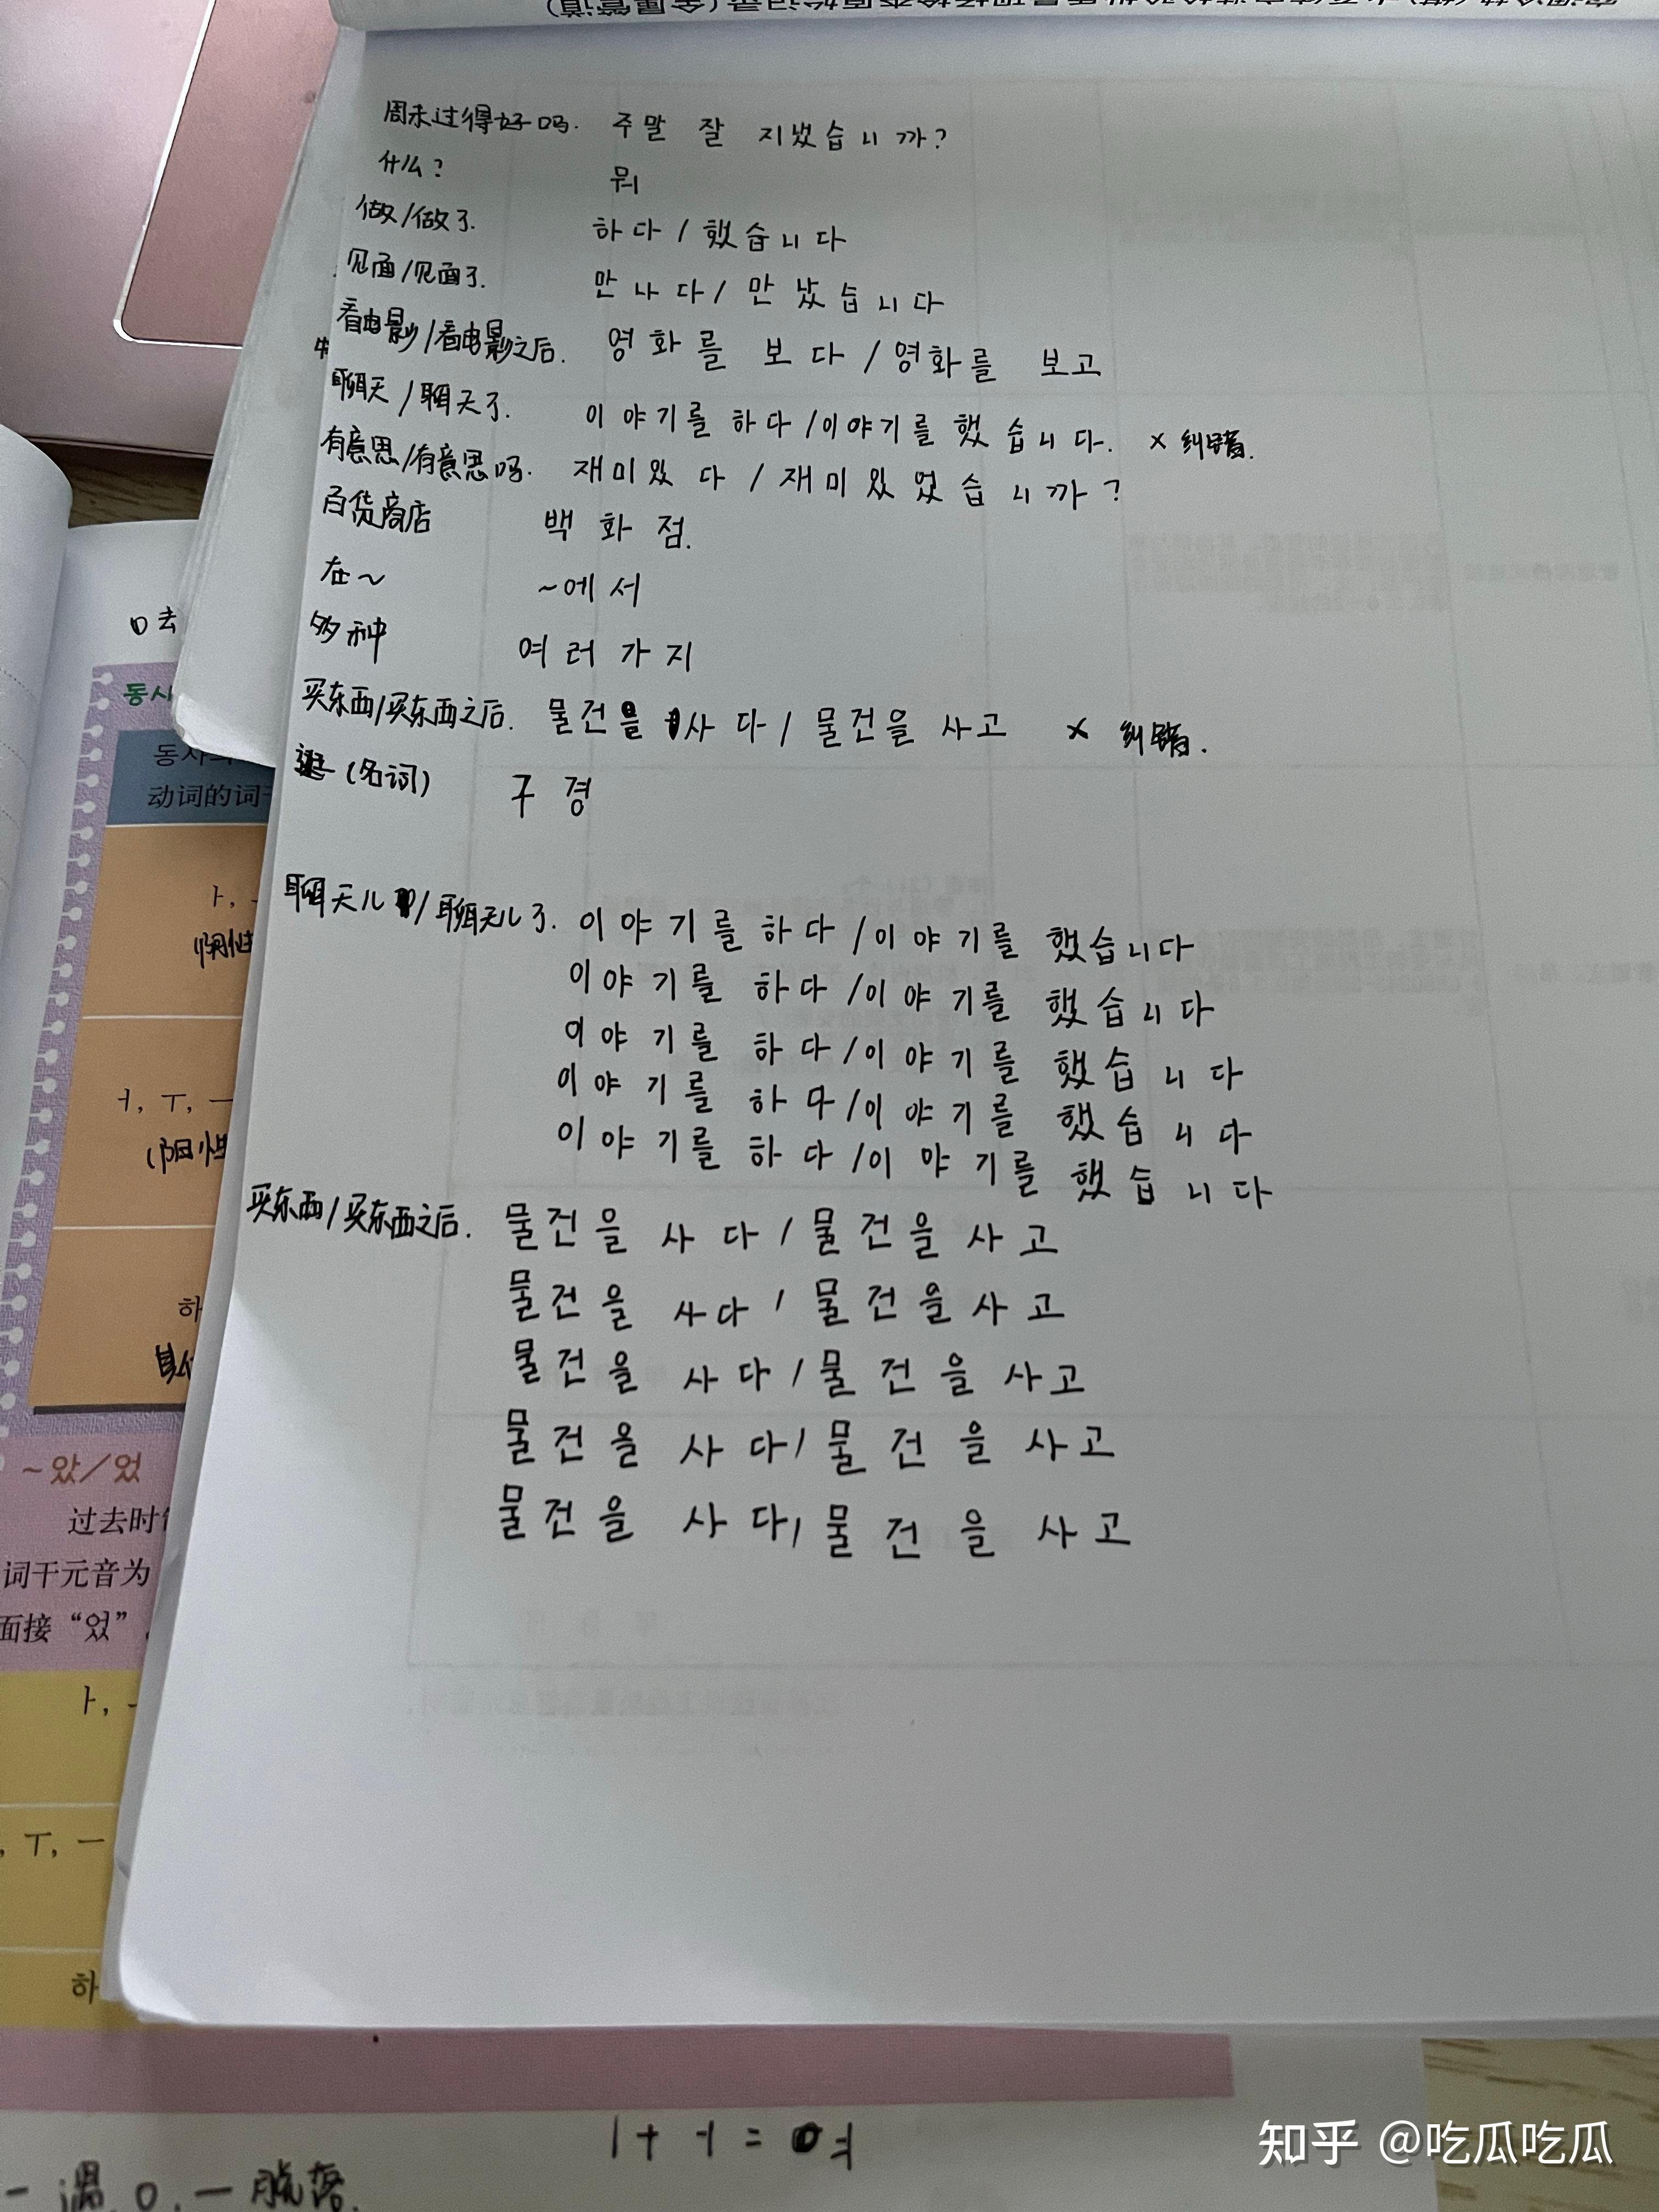 周末过得好吗. 주말 잘 지냈습니까?
什么? 뭐
做/做了. 하다/했습니다
见面/见面了. 만나다/만났습니다
看电影/看电影之后. 영화를 보다/영화를 보고
聊天/聊天了. 이야기를 하다/이야기를 했습니다. × 纠错.
有意思/有意思吗. 재미있다/재미있었습니까?
百货商店 백화점.
在~ ~에서
多种 여러가지
买东西/买东西之后. 물건을 사다/물건을 사고 × 纠错.
(名词) 구경
聊天儿/聊天儿了. 이야기를 하다/이야기를 했습니다
이야기를 하다/이야기를 했습니다
이야기를 하다/이야기를 했습니다
이야기를 하다/이야기를 했습니다
이야기를 하다/이야기를 했습니다
买东西/买东西之后. 물건을 사다/물건을 사고
물건을 사다/물건을 사고
물건을 사다/물건을 사고
물건을 사다/물건을 사고
물건을 사다/물건을 사고
口去
동사
동사의
动词的词干
ㅏ,
ㅓ,ㅜ,ㅡ
(阳性
하
~았/었
过去时
词干元音为
面接“었”
ㅏ,
,ㅜ,ㅡ
하
ㅣ+ㅓ=ㅕ
一遇 0,一脱落.
知乎 @吃瓜吃瓜